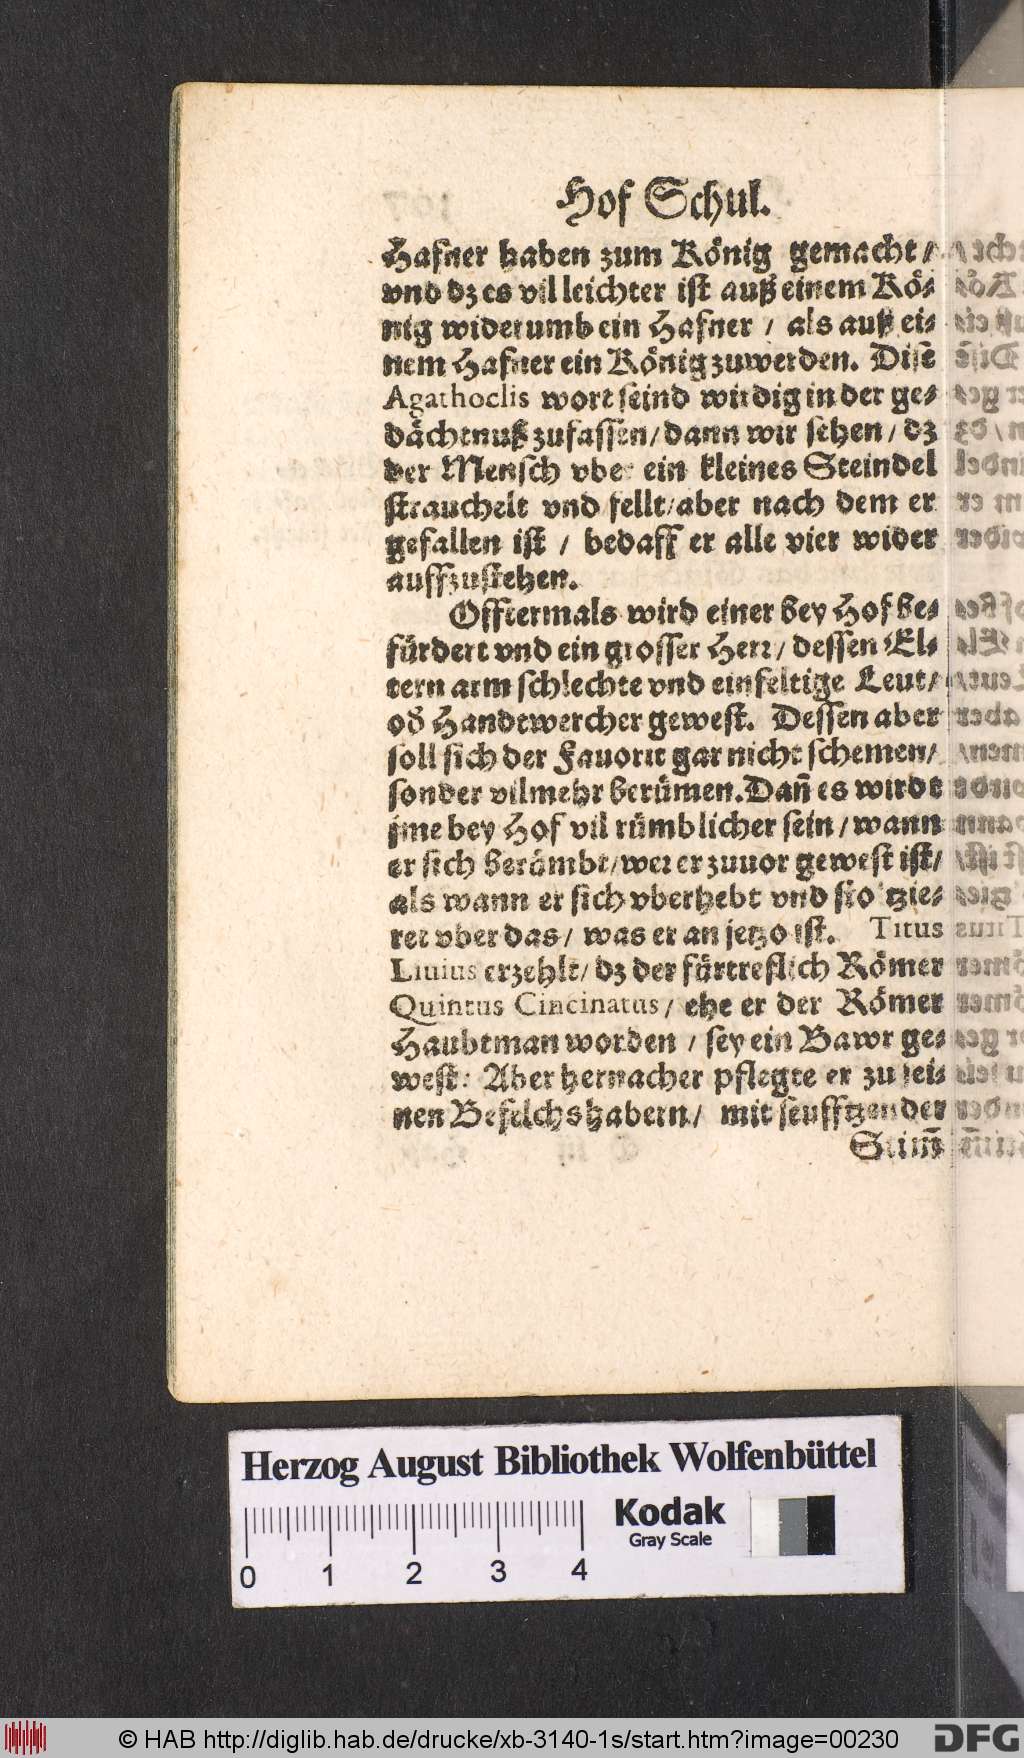 Hof Schul.
Hafner haben zum König gemacht /
vnd dz es vil leichter ist auß einem Kö⸗
nig widerumb ein Hafner / als auß ei⸗
nem Hafner ein König zuwerden. Dise
Agathoclis wort seind wirdig in der ge⸗
dächtnuß zufassen / dann wir sehen / dz
der Mensch vber ein kleines Steindel
strauchelt vnd fellt / aber nach dem er
gefallen ist / bedaff er alle vier wider
auffzustehen.
Offtermals wird einer bey Hof be⸗
fürdert vnd ein grosser Herr / dessen El⸗
tern arm schlechte vnd einfeltige Leut /
od̃ Handtwercher gewest. Dessen aber
soll sich der Fauorit gar nicht schemen /
sonder vilmehr berümen. Dañ es wirdt
jme bey Hof vil rümblicher sein / wann
er sich berümbt / wer er zuuor gewest ist /
als wann er sich vberhebt vnd stoltzie⸗
ret vber das / was er an jetzo ist. Titus
Liuius erzehlt / dz der fürtreflich Römer
Quintus Cincinatus / ehe er der Römer
Haubtman worden / sey ein Bawr ge⸗
west: Aber hernacher pflegte er zu sei⸗
nen Befelchshabern / mit seufftzender
Stim̃
Herzog August Bibliothek Wolfenbüttel
Kodak
Gray Scale
0 1 2 3 4
© HAB http://diglib.hab.de/drucke/xb-3140-1s/start.htm?image=00230
DFG